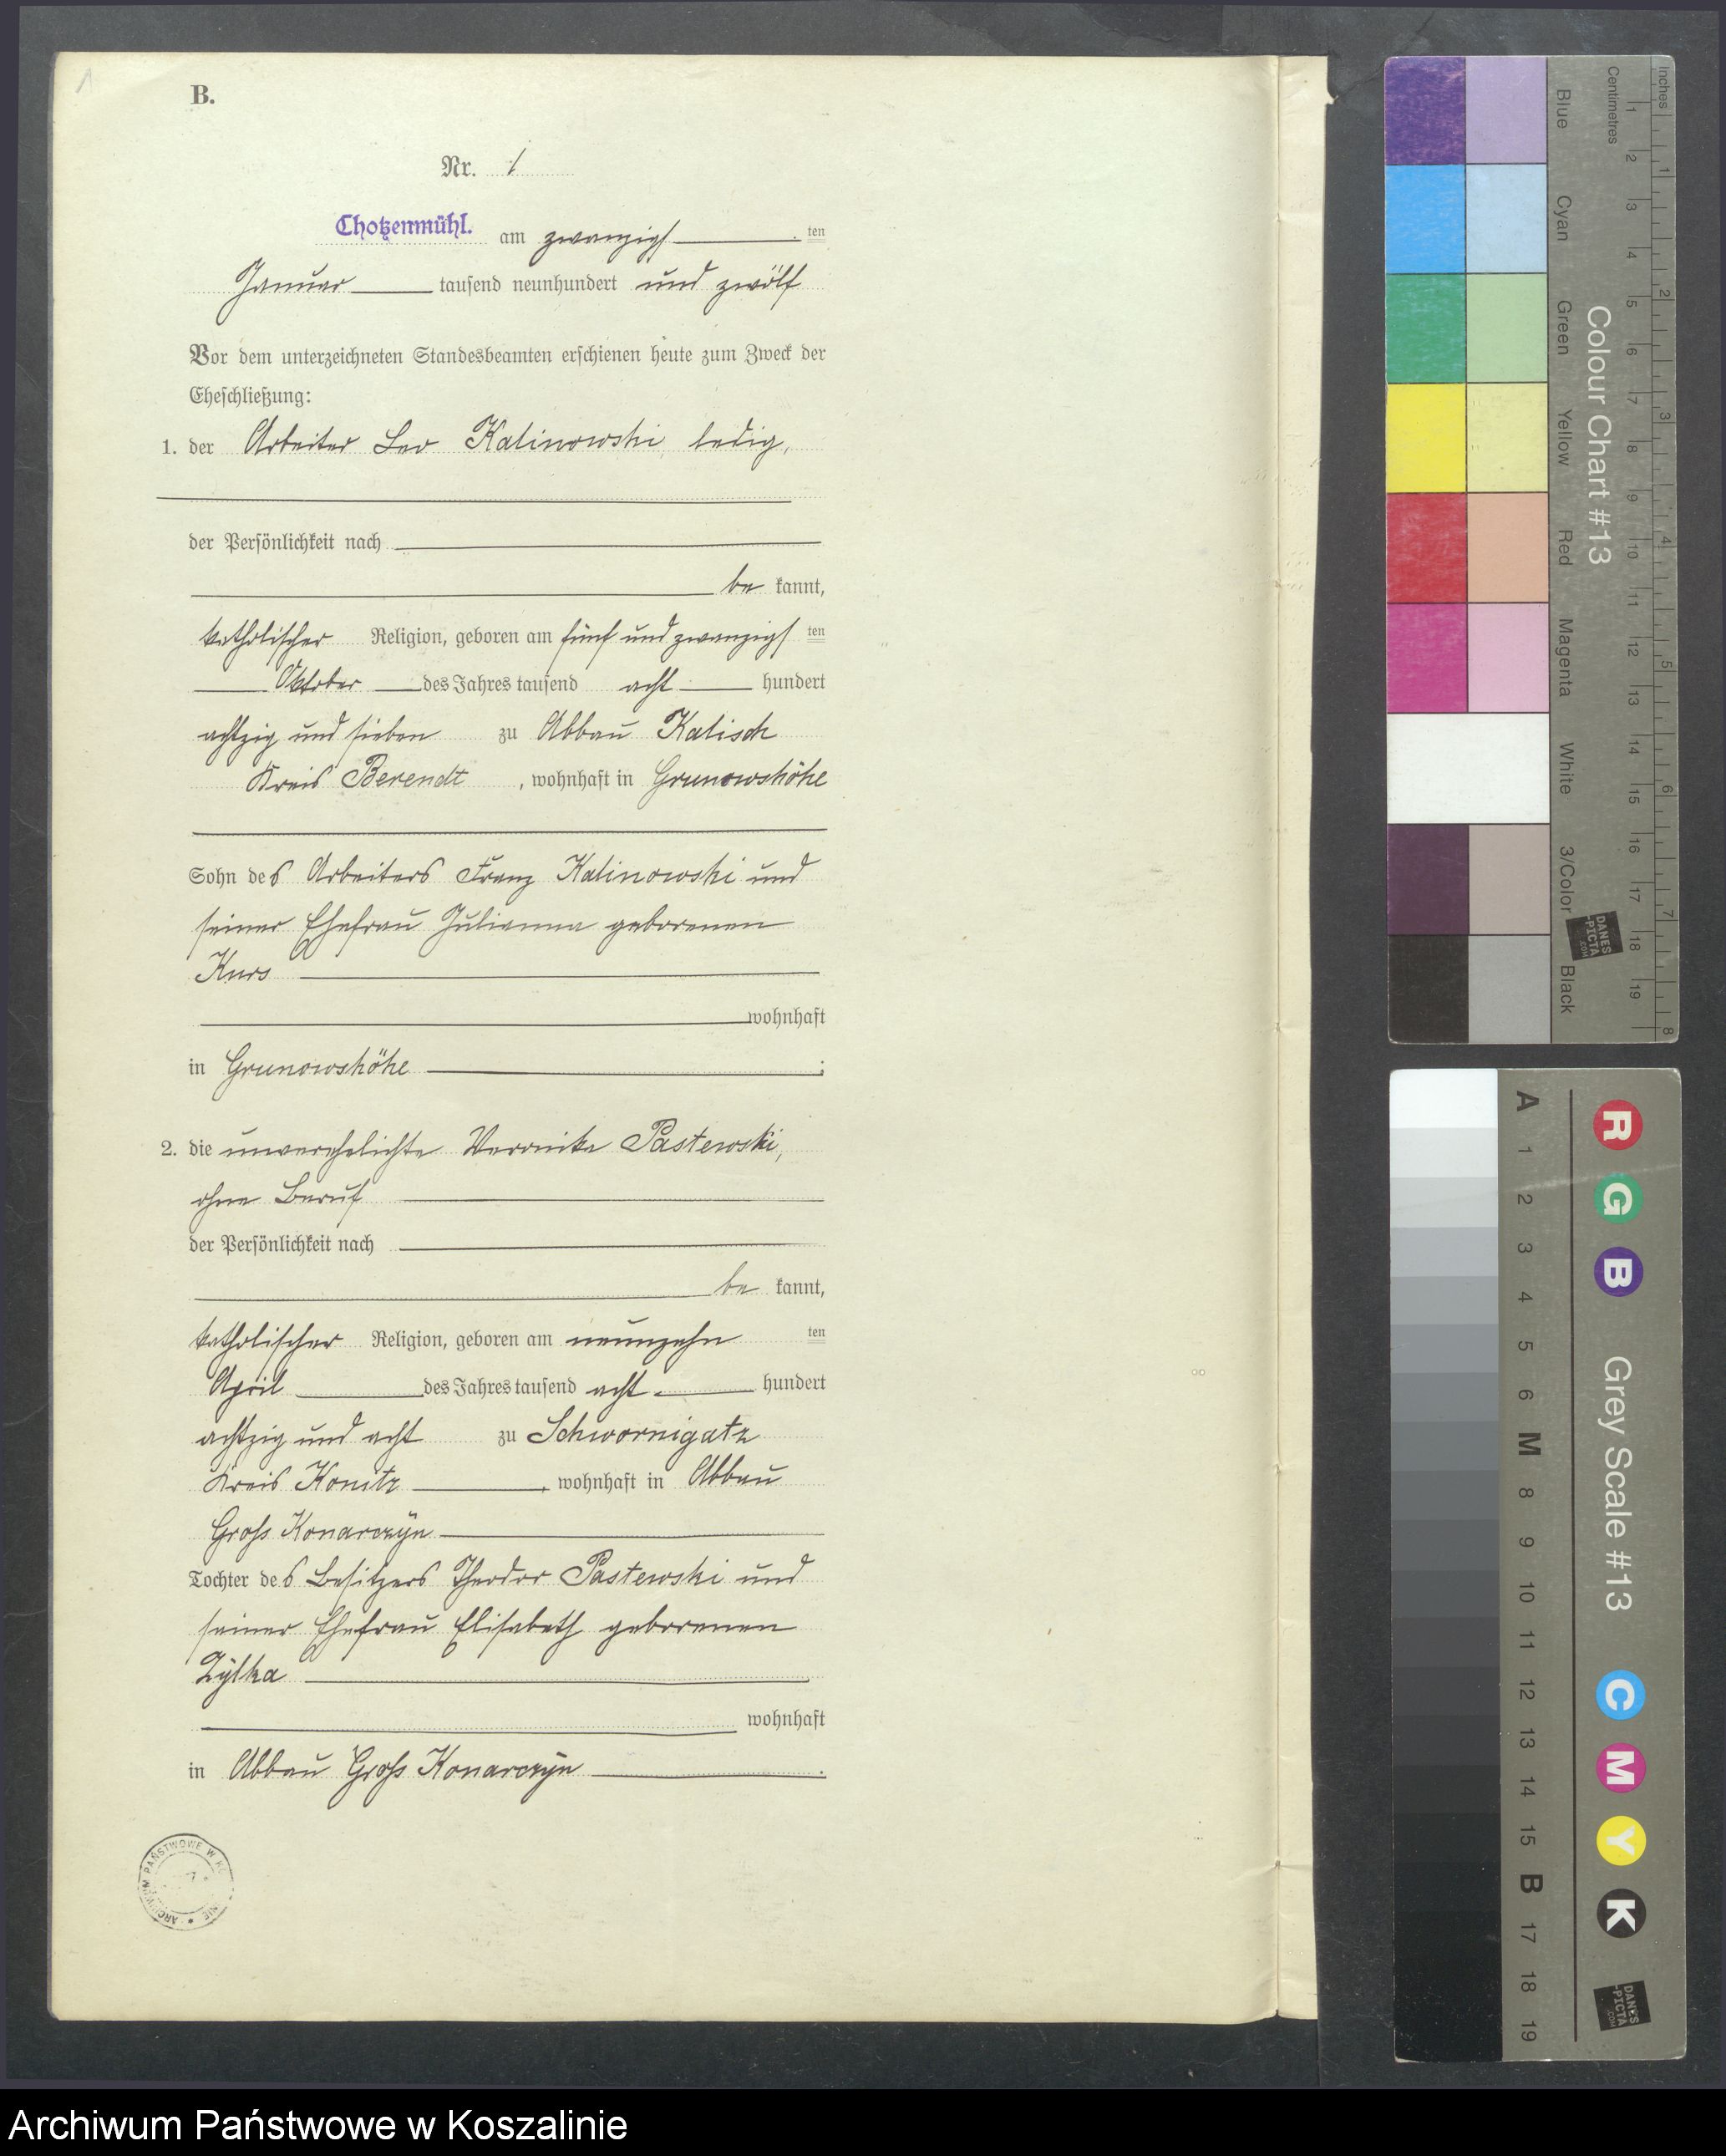 B.
Nr. 1
Chotzenmühl. am zwanzigs ten
Januar tausend neunhundert und zwölf
Vor dem unterzeichneten Standesbeamten erschienen heute zum Zweck der
Eheschließung:
1. der Arbeiter Leo Kalinowski, ledig,
der Persönlichkeit nach
be kannt,
katholischer Religion, geboren am fünf und zwanzigs ten
Oktober des Jahres tausend acht hundert
achtzig und sieben zu Abbau Kalisch
Kreis Berendt, wohnhaft in Grunowshöhe
Sohn des Arbeiters Franz Kalinowski und
seiner Ehefrau Julianna geborenen
Knrs
wohnhaft
in Grunowshöhe ;
2. die unverehelichte Veronika Pastewski,
ohne Beruf
der Persönlichkeit nach
be kannt,
katholischer Religion, geboren am neunzehn ten
April des Jahres tausend acht hundert
achtzig und acht zu Schwornigatz
Kreis Konitz, wohnhaft in Abbau
Gross Konarczyn
Tochter des Besitzers Theodor Pastewski und
seiner Ehefrau Elisabeth geborenen
Zylka
wohnhaft
in Abbau Gross Konarczyn.
ARCHIWUM PAŃSTWOWE W
Colour Chart #13
Blue Cyan Green Yellow Red Magenta White 3/Color Black
Centimetres 1 2 3 4 5 6 7 8 9 10 11 12 13 14 15 16 17 18 19
Inches 1 2 3 4 5 6 7 8
DANES
-PICTA
.COM
Grey Scale #13
A 1 2 3 4 5 6 M 8 9 10 11 12 13 14 15 B 17 18 19
R G B C M Y K
DANES
-PICTA
.COM
Archiwum Państwowe w Koszalinie